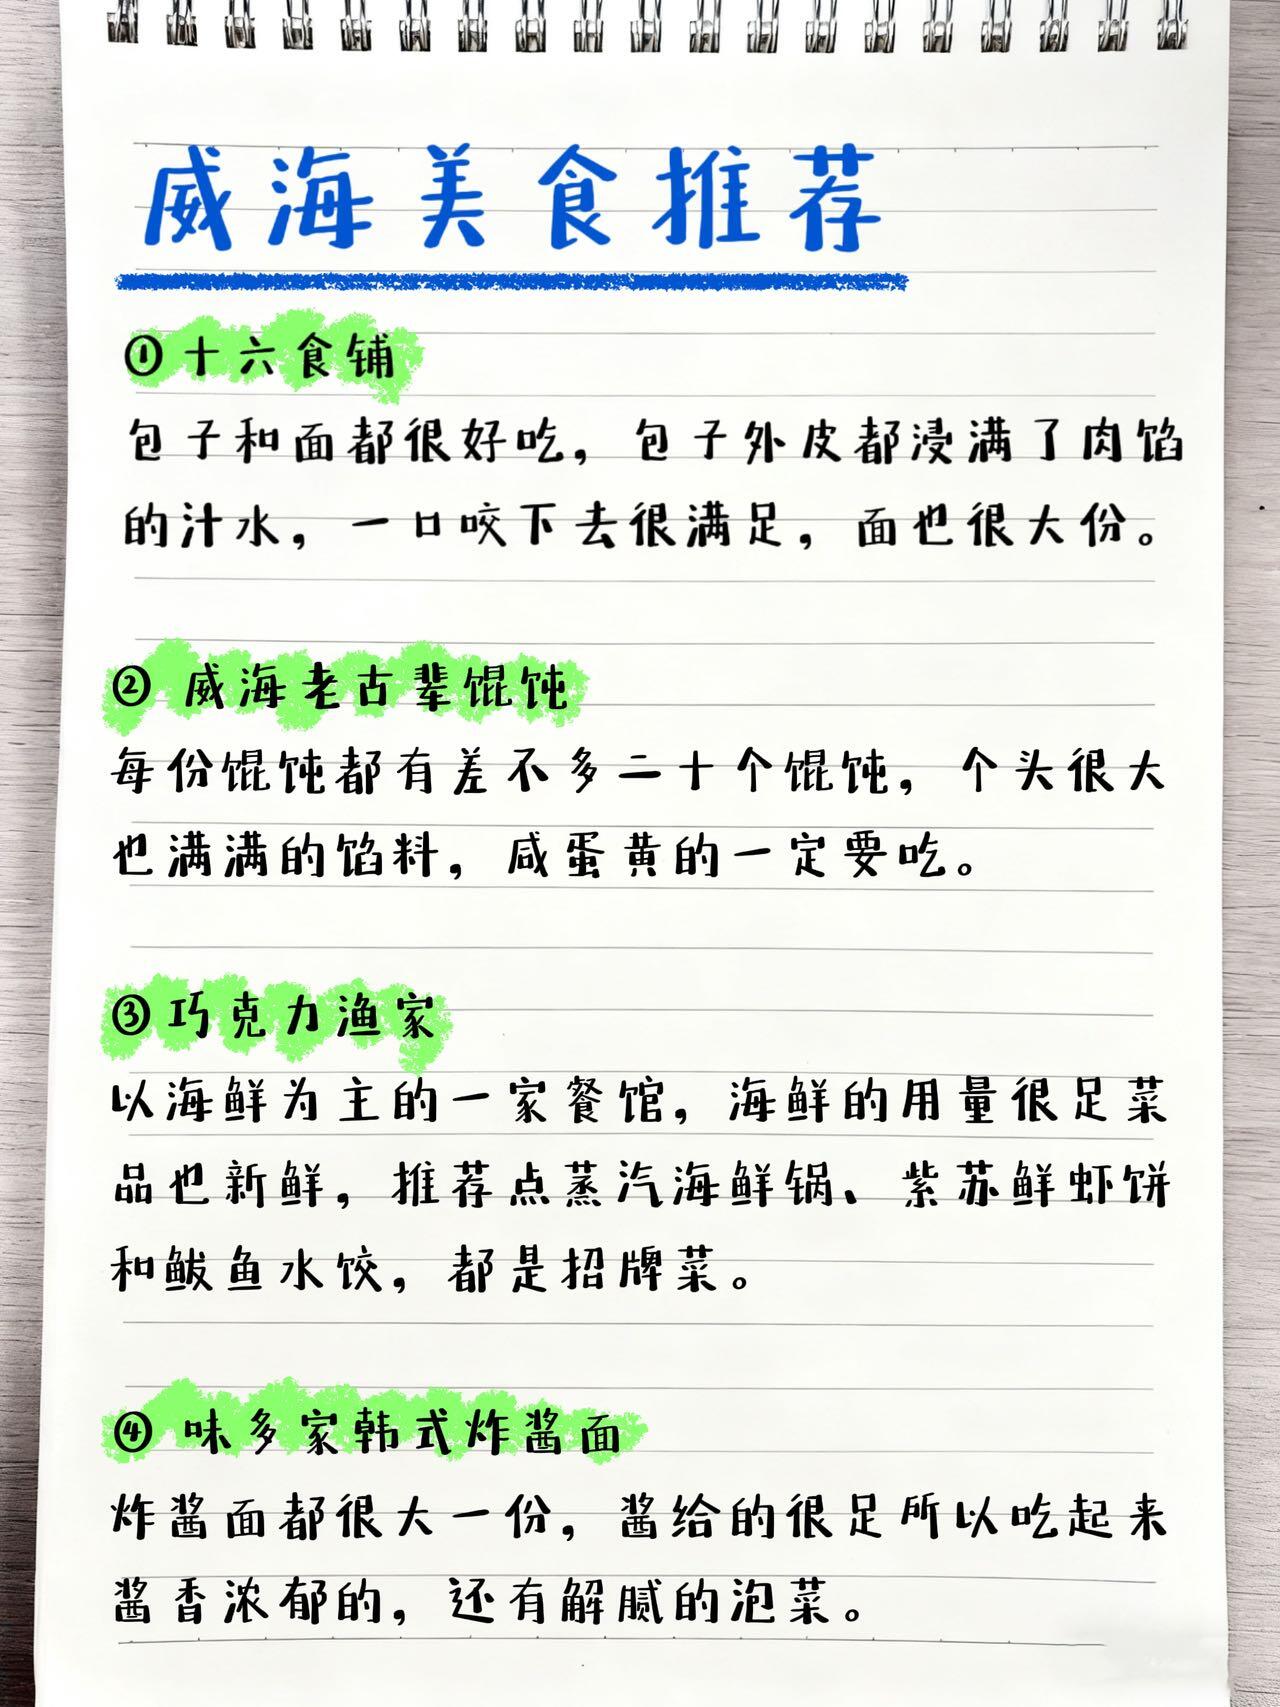 威海美食推荐
①十六食铺
包子和面都很好吃，包子外皮都浸满了肉馅
的汁水，一口咬下去很满足，面也很大份。
② 威海老古辈馄饨
每份馄饨都有差不多二十个馄饨，个头很大
也满满的馅料，咸蛋黄的一定要吃。
③巧克力渔家
以海鲜为主的一家餐馆，海鲜的用量很足菜
品也新鲜，推荐点蒸汽海鲜锅、紫苏鲜虾饼
和鲅鱼水饺，都是招牌菜。
④ 味多家韩式炸酱面
炸酱面都很大一份，酱给的很足所以吃起来
酱香浓郁的，还有解腻的泡菜。